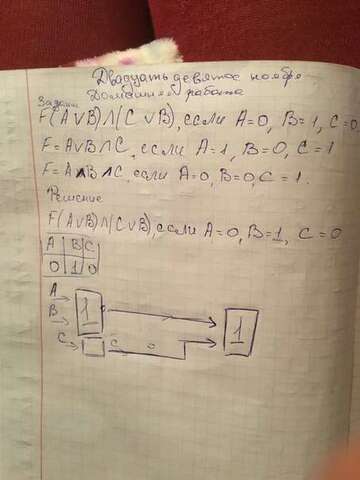 Двадцать девятое ноября
Домашняя работа
Задани
F(A∨B)∧(C∨B), если A=0, B=1, C=0
F=A∨B∧C, если A=1, B=0, C=1
F=A∧B∧C, если A=0, B=0, C=1.
Решение
F(A∨B)∧(C∨B), если A=0, B=1, C=0
A B C
0 1 0
A
B
1
1
C
C
0